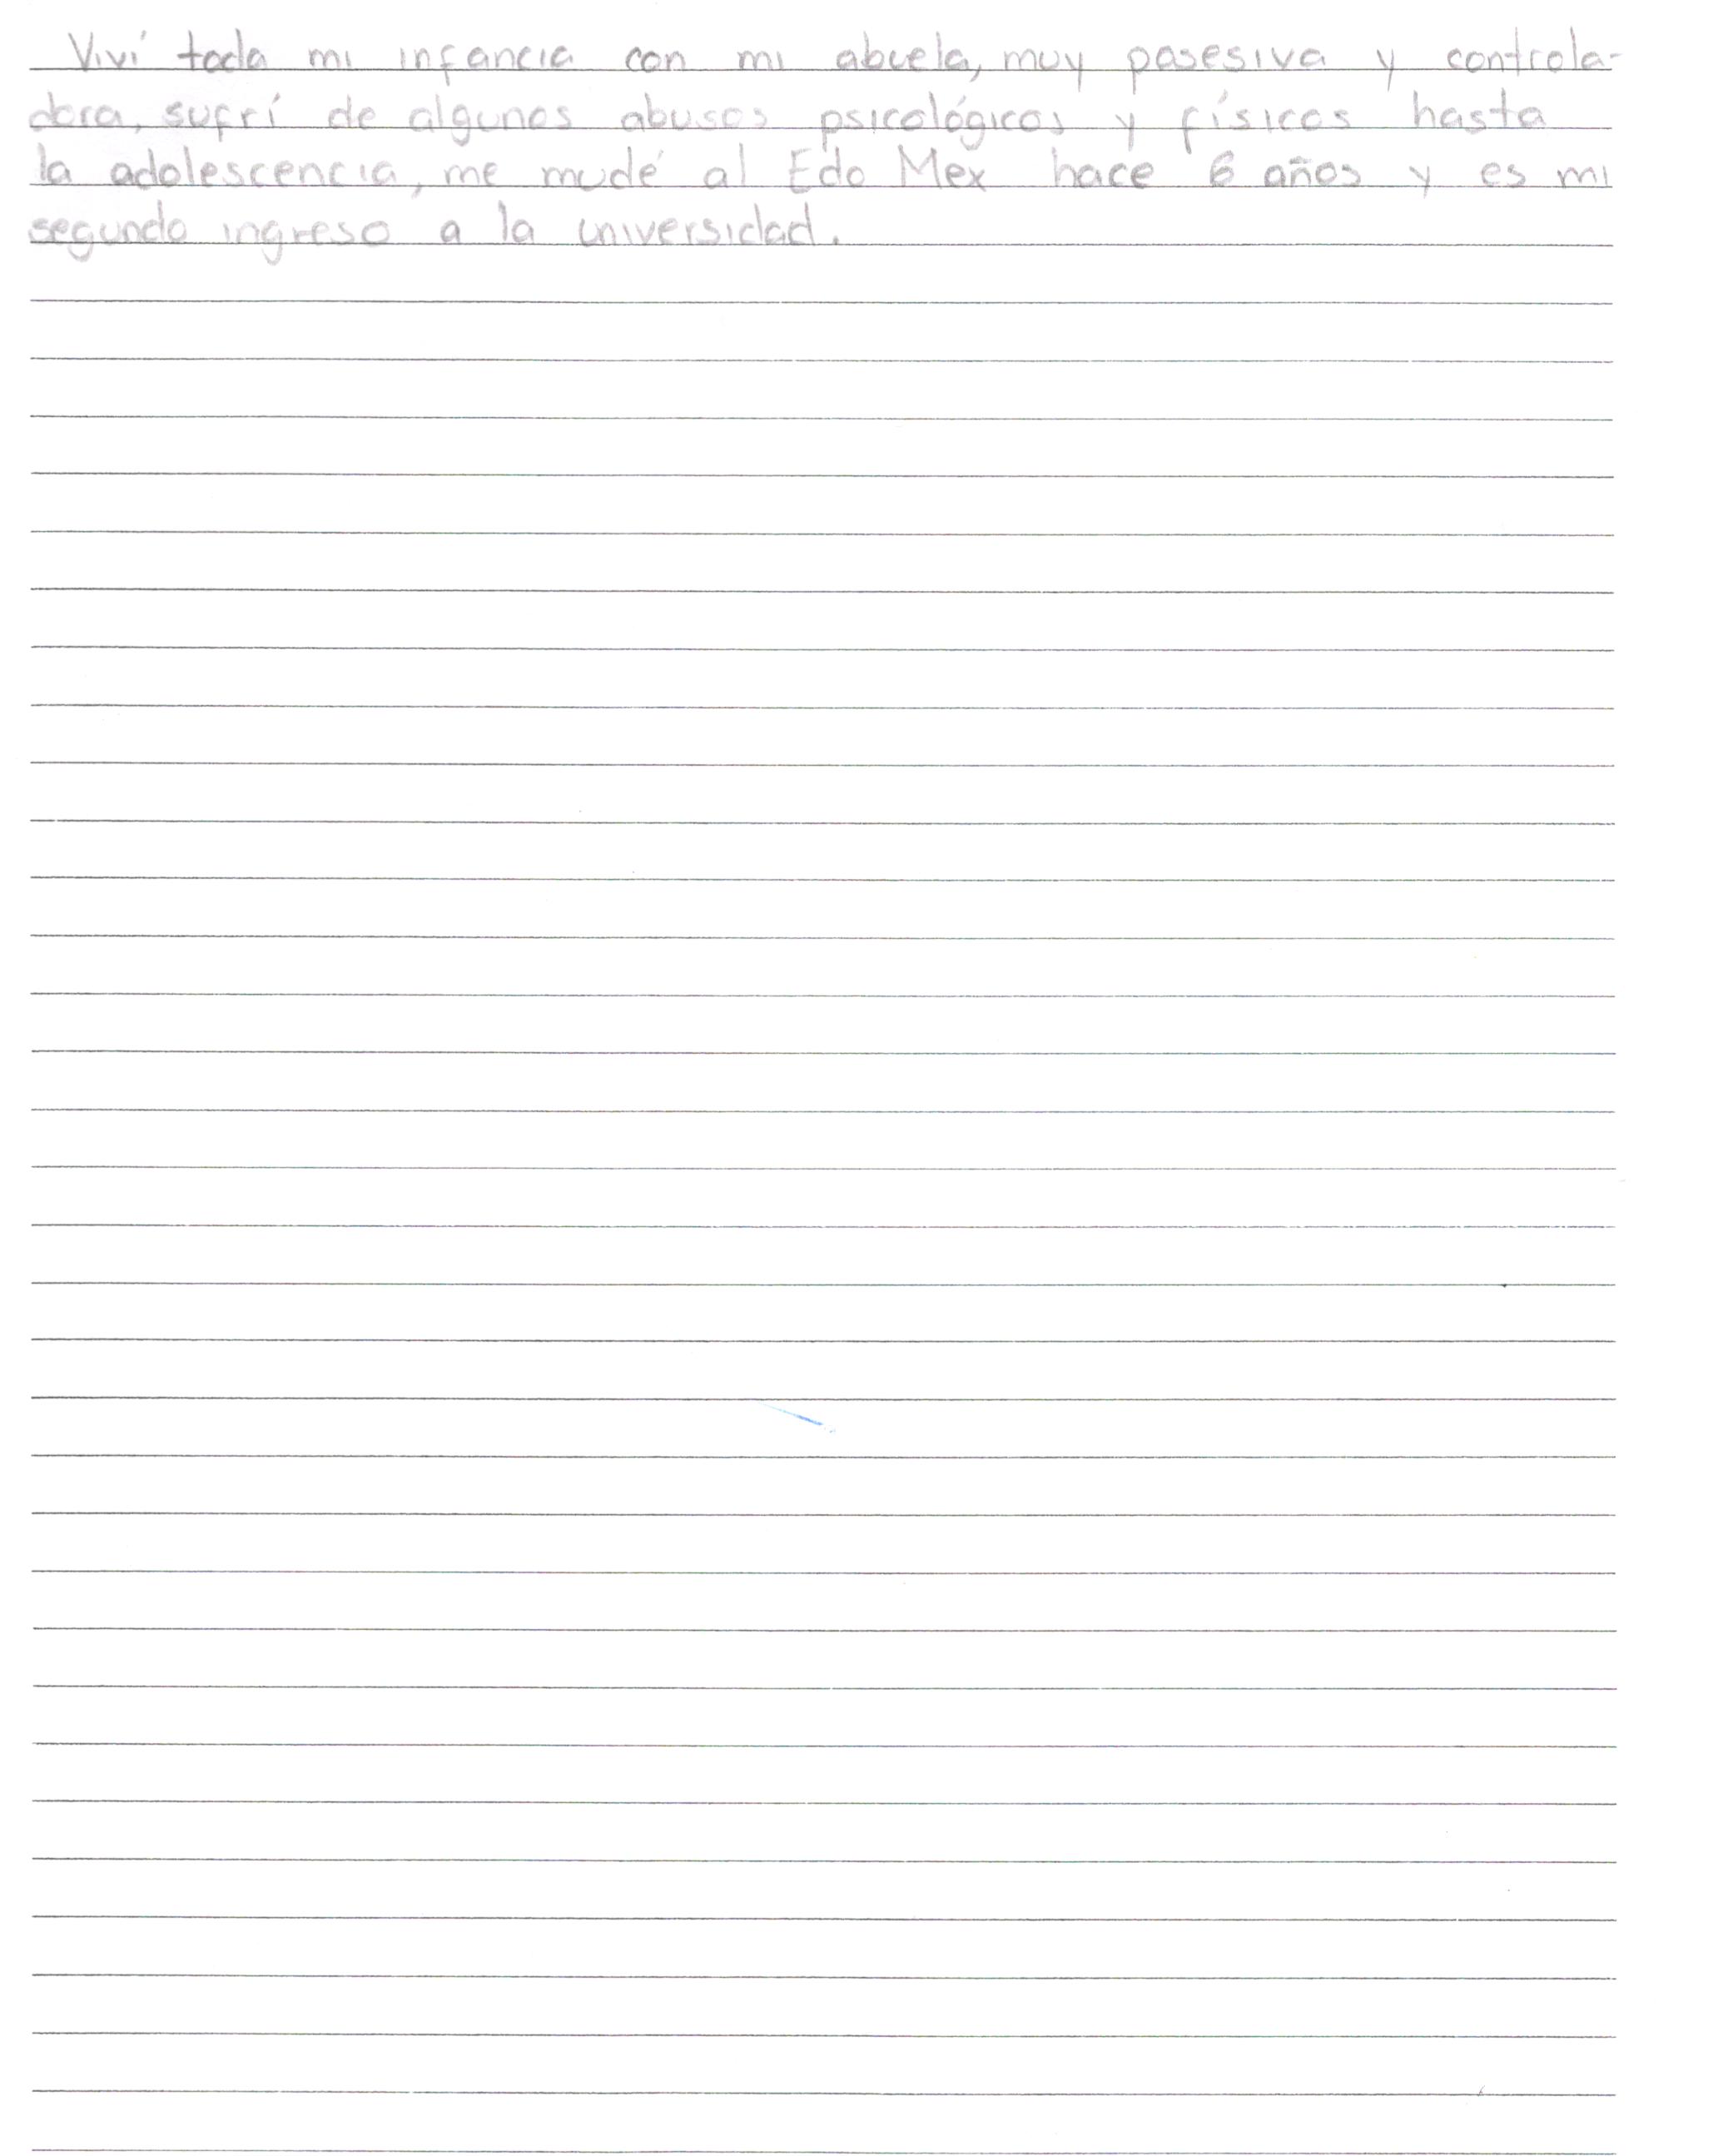 Viví toda mi infancia con mi abuela, muy posesiva y controla-
dora, sufrí de algunos abusos psicológicos y físicos hasta
la adolescencia, me mudé al Edo Mex hace 6 años y es mi
segundo ingreso a la universidad.